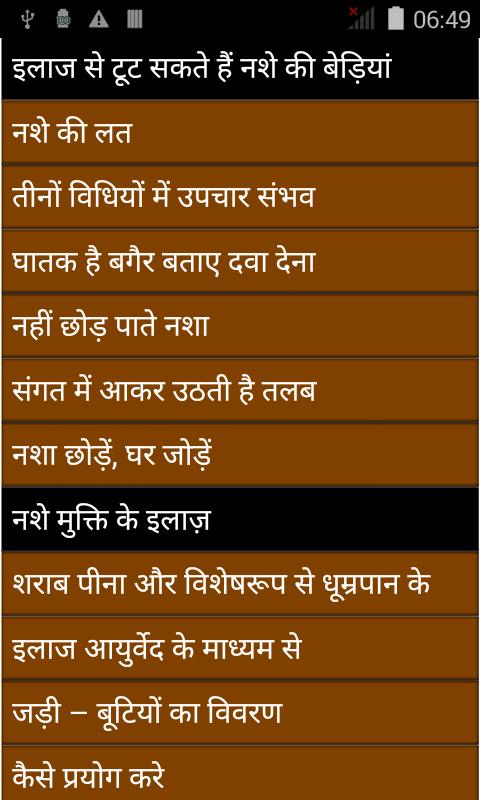 06:49
इलाज से टूट सकते हैं नशे की बेड़ियां
नशे की लत
तीनों विधियों में उपचार संभव
घातक है बगैर बताए दवा देना
नहीं छोड़ पाते नशा
संगत में आकर उठती है तलब
नशा छोड़ें, घर जोड़ें
नशे मुक्ति के इलाज़
शराब पीना और विशेषरूप से धूम्रपान के
इलाज आयुर्वेद के माध्यम से
जड़ी – बूटियों का विवरण
कैसे प्रयोग करे